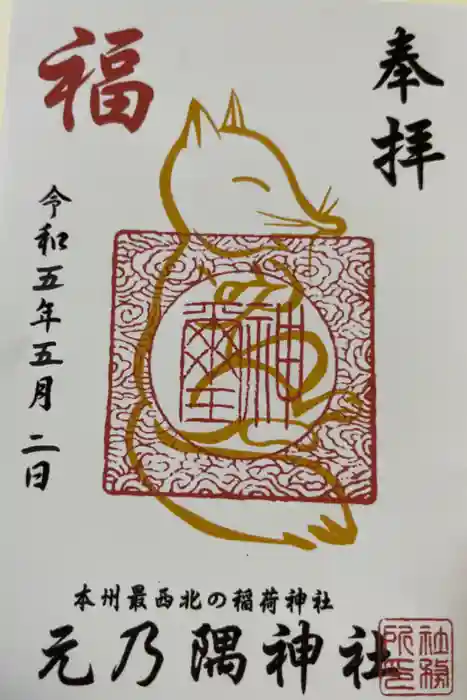 奉拝
福
神璽
令和五年五月二日
本州最西北の稲荷神社
元乃隅神社
社務所印